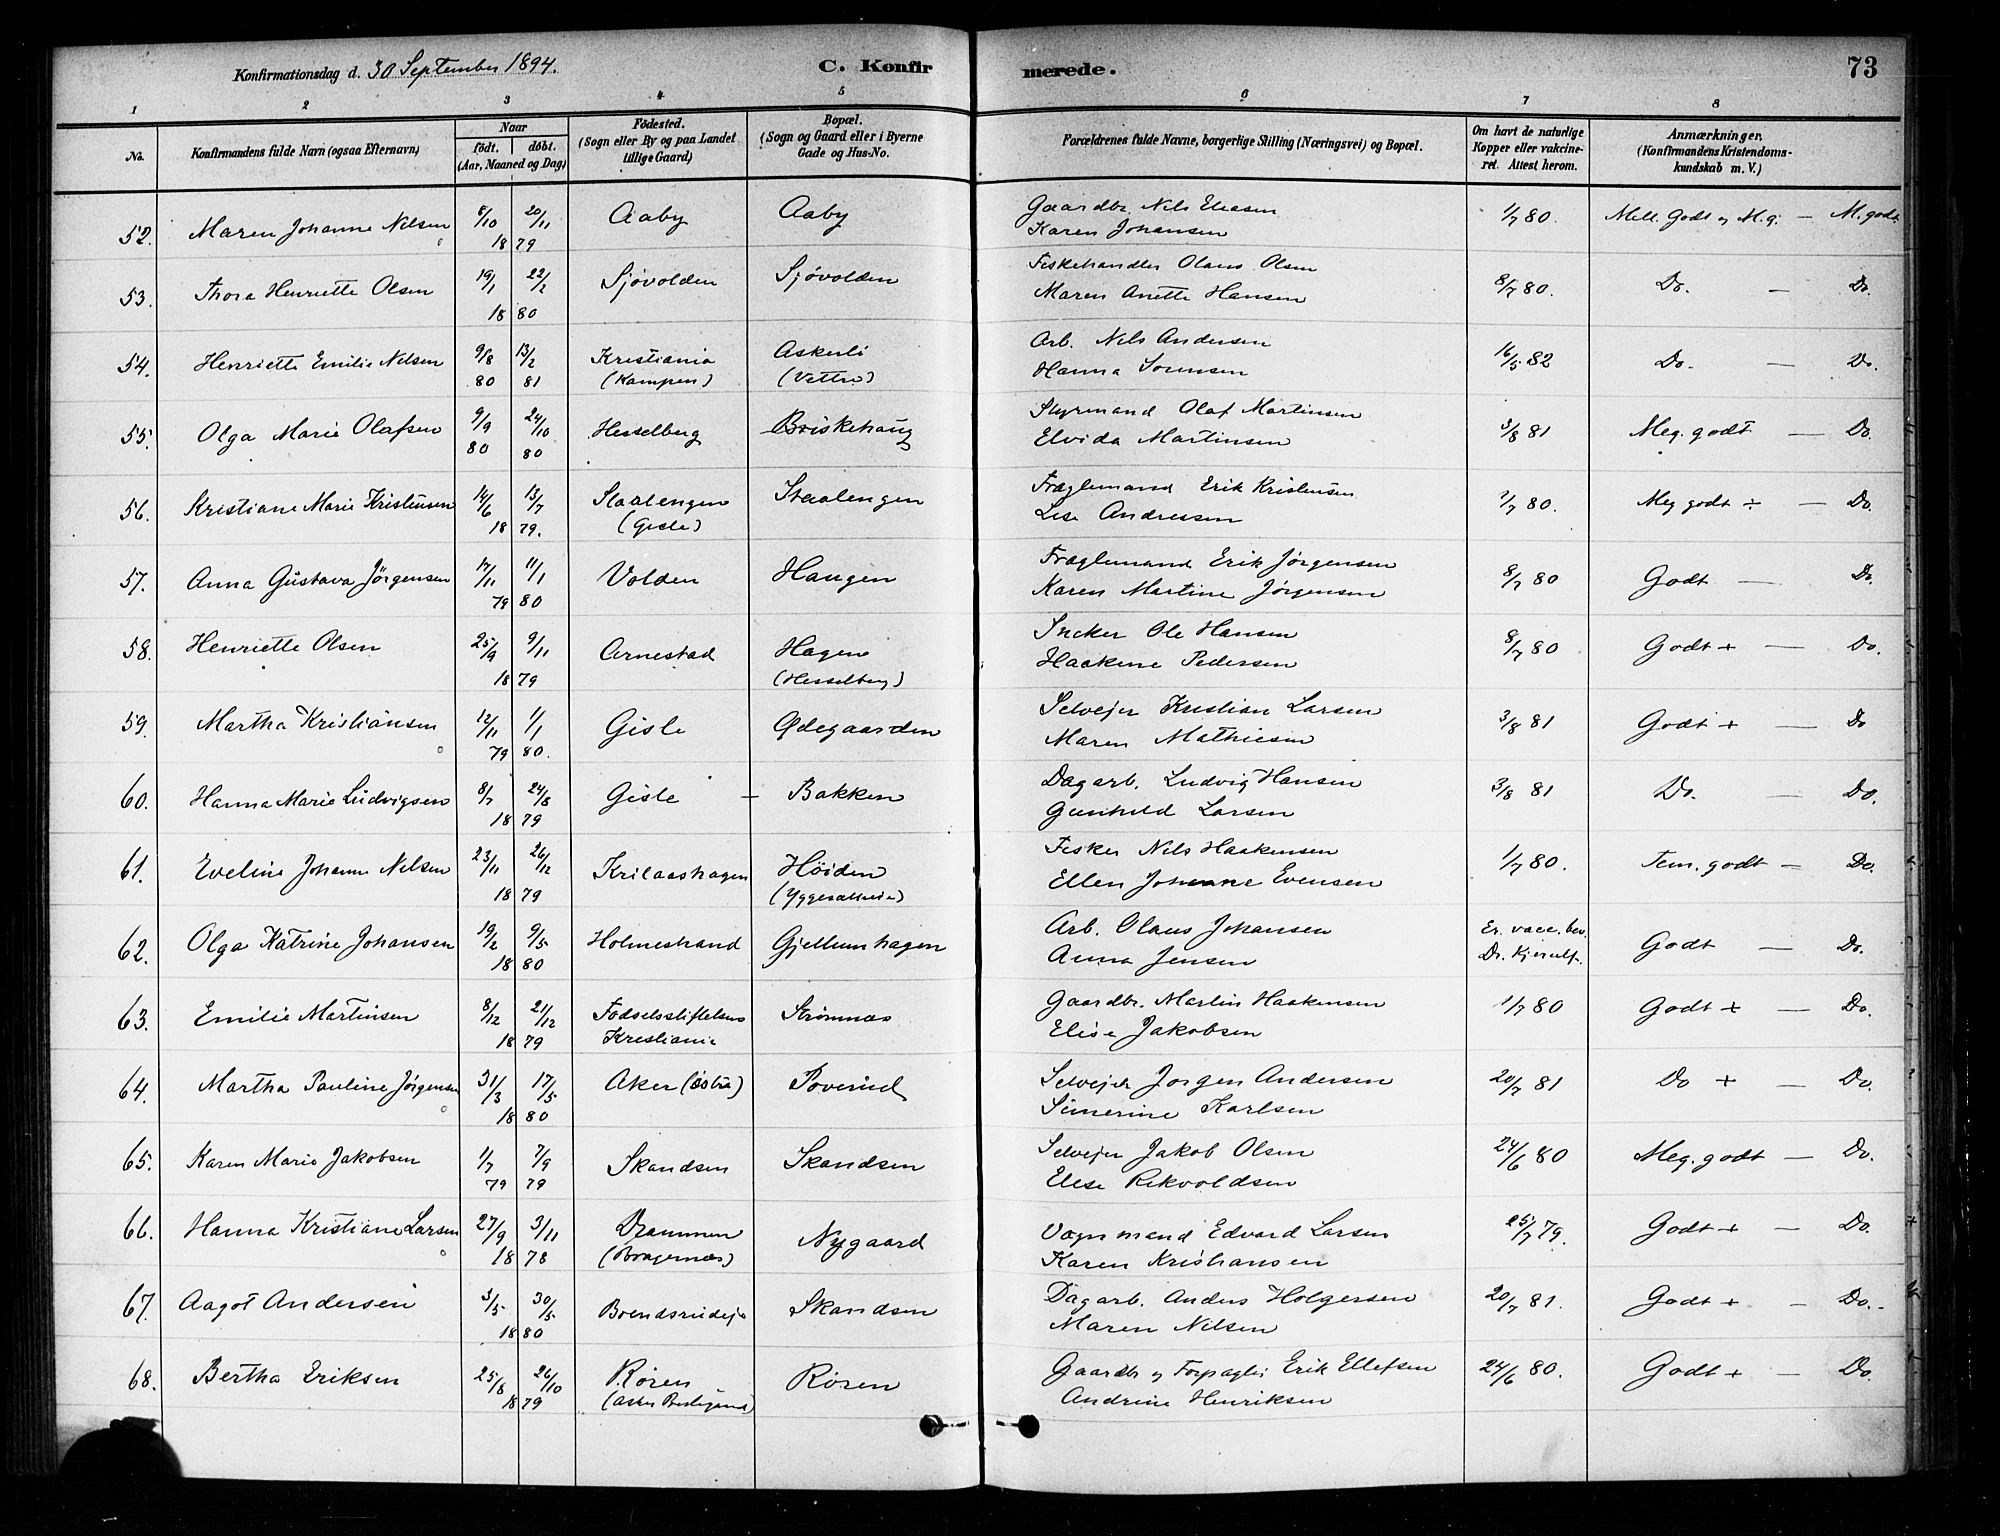 Konfirmationsdag d. 30 September 1894. C. Konfir merede. 73
1 2 3 4 5 6 7 8
No. Konfirmandens fulde Navn (ogsaa Efternavn) Naar født. døbt. (Aar, Maaned og Dag) Fødested. (Sogn eller By og paa Landet tillige Gaard) Bopæl. (Sogn og Gaard eller i Byerne Gade og Hus-No. Forældrenes fulde Navne, borgerlige Stilling (Næringsvei) og Bopæl. Om havt de naturlige Kopper eller vakcineret. Attest herom. Anmærkninger. (Konfirmandens Kristendomskundskab m. V.)
52. Maren Johanne Nelsen 8/10 20/11 Aaby Aaby Gaardbr. Nils Eliasen 1/7 80. Mell. Godt og M.g. — M. godt
18 79 Karen Johansen
53. Thora Henriette Olsen 19/1 22/2 Sjøvolden Sjøvolden Fiskehandler Olaus Olsen 8/7 80. Do. — Do.
18 80 Maren Anette Hansen
54. Henriette Emilie Nelsen 9/8 13/2 Kristiania Askerli Arb. Nils Andersen 16/5 82 Do. — Do.
80 81 (Kampen) (Vettre) Hanna Sørensen
55. Olga Marie Olafsen 9/9 24/10 Hesselberg Briskehaug Styrmand Olaf Martinsen 3/8 81 Meg. godt — Do.
80 80 Elvida Martinsen
56. Kristiane Marie Kristensen 14/6 13/7 Staalengen Staalengen Fraglemand Erik Kristensen 1/7 80. Meg godt ÷ — Do.
18 79. (Gisle) Lise Andressen
57. Anna Gustava Jørgensen 17/11 11/1 Volden Haugen Fraglemand Erik Jørgensen 8/7 80 Godt — Do.
79 80 Karen Martine Jørgensen
58. Henriette Olsen 25/9 9/11 Arnestad Hagen Sncker Ole Hansen 8/7 80 Godt + — Do.
18 79 (Hesselberg) Haakene Pedersen
59. Martha Kristiansen 12/11 1/1 Gisle Ødegaarden Selvejer Kristian Larsen 3/8 81 Godt + — Do
79 80. Maren Mathiesen
60. Hanna Marie Ludvigsen 8/7 24/8 Gisle — Bakken Dagarb. Ludvig Hansen 3/8 81 Do. — Do.
18 79 Gunhild Larsen
61. Eveline Johanne Nelsen 23/11 26/12 Krilaashagen Höiden Fisker Nils Haakensen 1/7 80. Tem. godt — Do.
18 79 Ellen Johanne Evensen
62. Olga Katrine Johansen 19/2 9/5 Holmestrand Gjellumhagen Arb. Olaus Johansen Er. vacc. bev. Godt — Do.
18 80 Anna Jensen Dr. Kjerulf.
63. Emilie Martinsen 8/12 21/12 Fødselsstiftelsen Strømnæs Gaardbr. Martin Haakensen 1/7 80 Godt + — Do.
18 79 Kristiania Elise Jakobsen
64. Martha Pauline Jørgensen 31/3 17/5 Aker (østre) Poverud Selvejer Jørgen Andersen 20/7 81 Do + — Do.
18 80 Simerine Karlsen
65. Karen Marie Jakobsen 1/7 7/9 Skandsen Skandsen Selvejer Jakob Olsen 24/6 80 Meg. godt — Do.
79 79 Elise Rikvoldsen
66. Hanna Kristiane Larsen 27/9 3/11 Drammen Nygaard Vognmand Edvard Larsen 25/7 79. Godt + — Do.
18 78 (Bragernæs) Karen Kristiansen
67. Aagot Andersen 3/5 30/5 Boendsrudeje Skandsen Dagarb. Anders Holgersen 20/7 81. Godt + — Do.
18 80 Maren Nilsen
68. Bertha Eriksen 25/8 26/10 Røren Røren Gaardbr og Forpagter Erik Ellefsen 24/6 80. Godt + — Do.
18 79 Andrine Henriksen